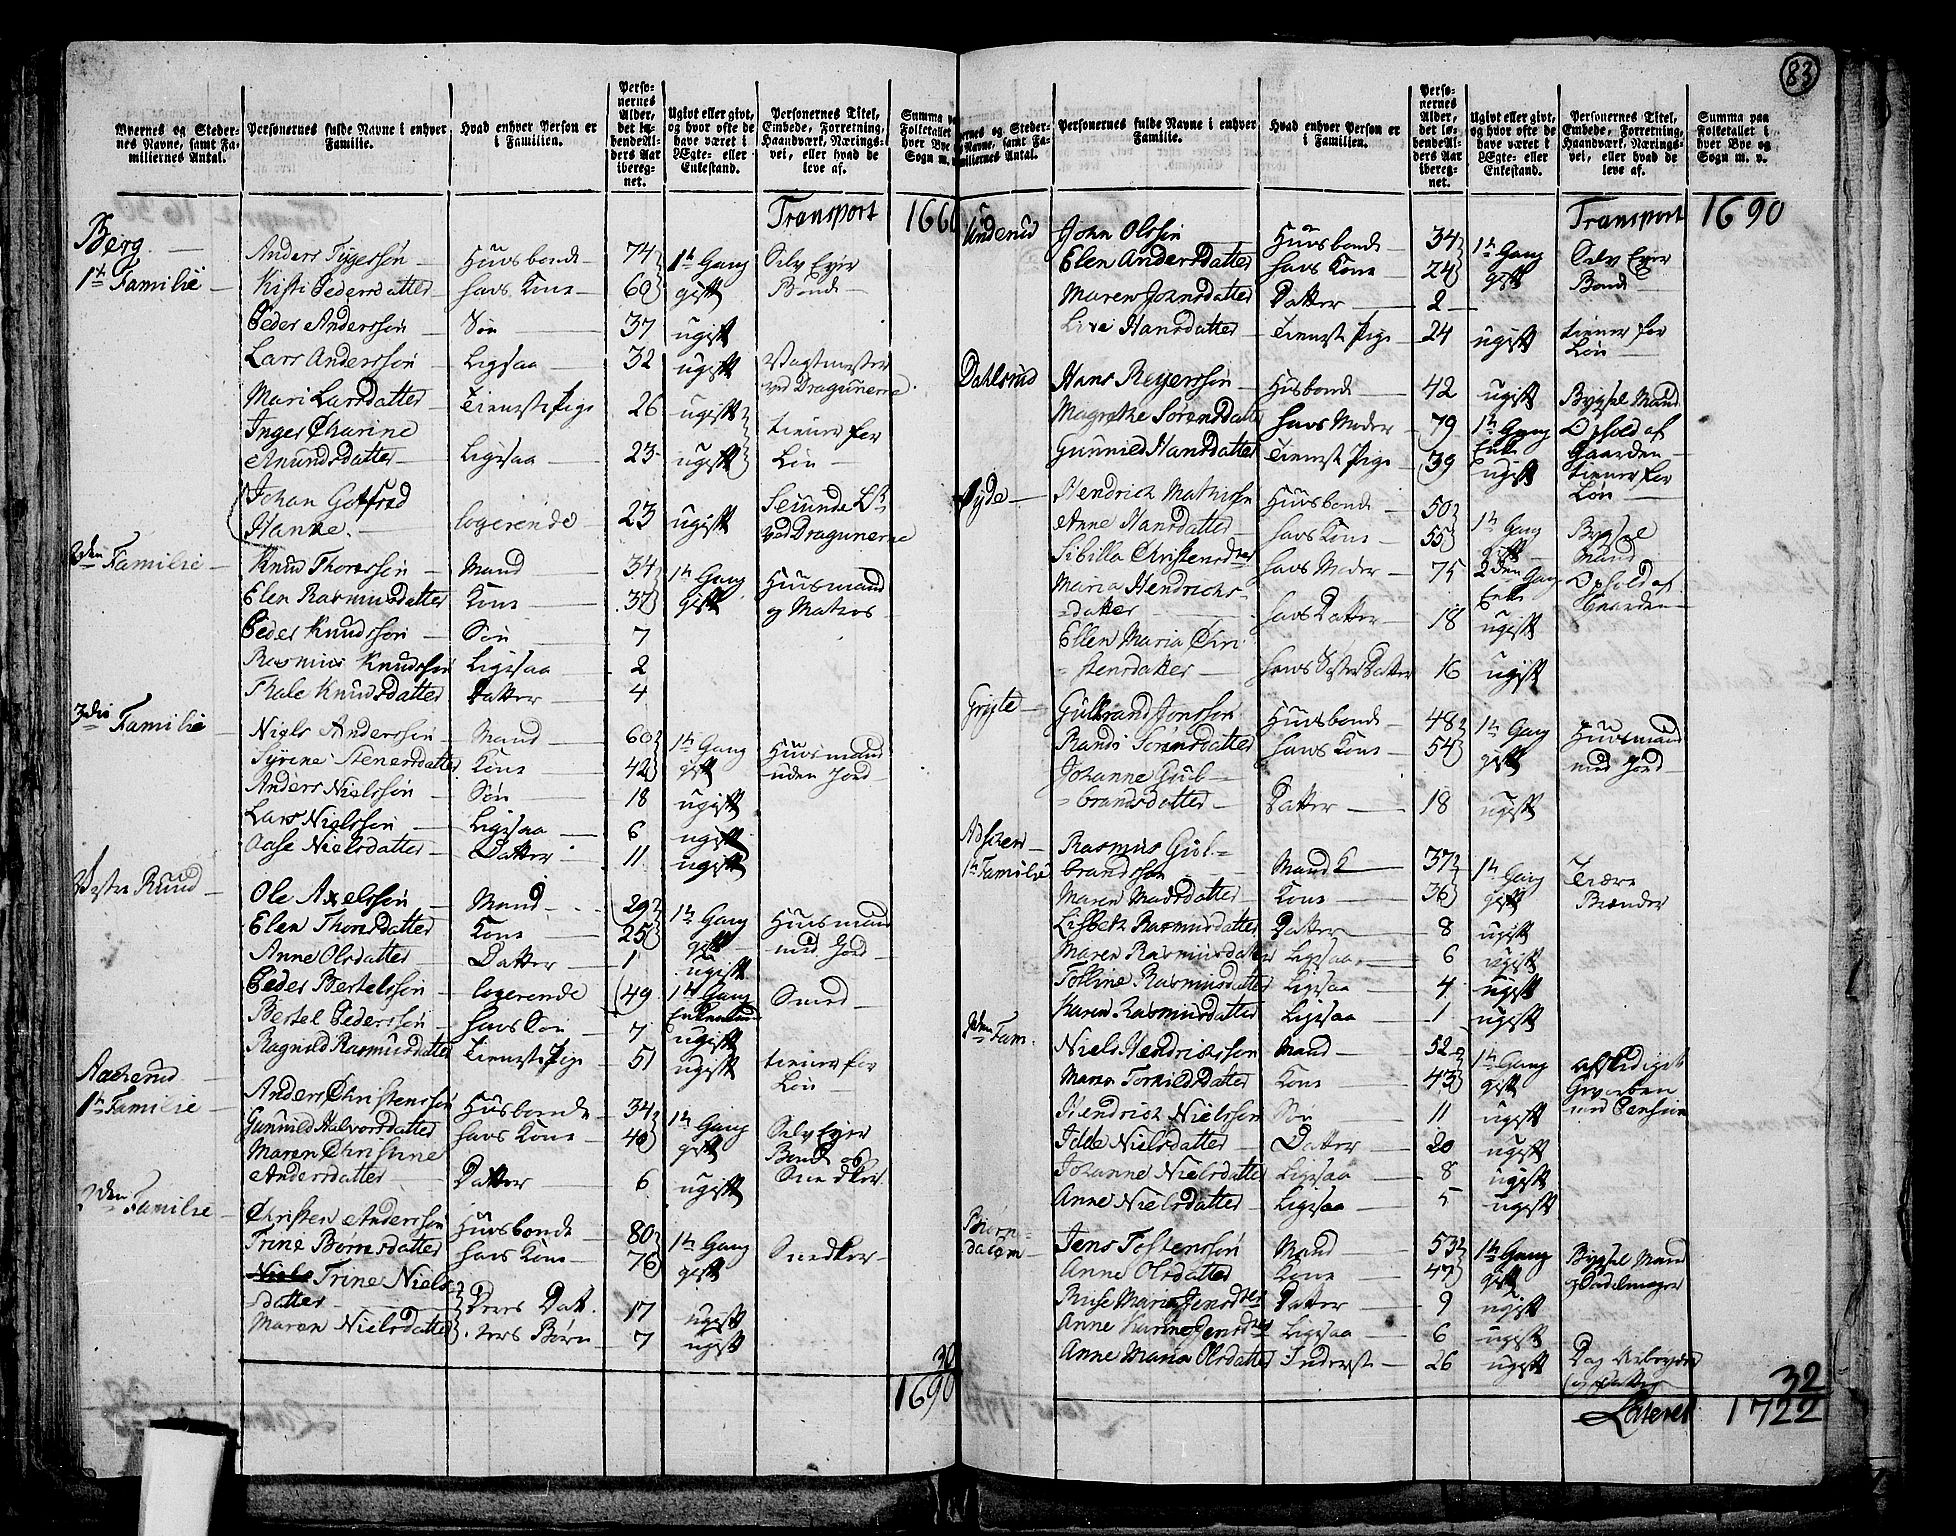 83
Byernes og Steder-
nes Navne, samt Fa-
miliernes Antal.
Personernes fulde Navne i enhver
Familie.
Hvad enhver Person er
i Familien.
Perso-
nernes
Alder,
det lø-
bende Al-
ders Aar
iberæg-
net.
Ugivt eller givt,
og hvor ofte de
have været i
Ægte- eller
Enkestand.
Personernes Titel,
Embede, Forretning,
Haandværk, Nærings-
vei, eller hvad de
leve af.
Summa paa
Folketallet i
hver Bye og
Sogn m. v.
Transport 1660
Berg
1te Familie Anders Tygerssøn Huusbonde 74 1te Gang Selv Eyer
Kisti Pedersdatter hans Kone 60 gift Bonde
Peder Anderssøn Søn 37 ugift
Lars Anderssøn Ligesaa 32 ugift Vagtmester
ved Dragunerne
Mari Larsdatter Tieneste Pige 26 ugift tiener for
Inger Charine
Amundsdatter Ligesaa 23 ugift Løn
Johan Gotfred
Hanke logerende 23 ugift Secunde Lt
ved Dragunerne
2den Familie Knud Thorssøn Mand 34 1te Gang Huusmand
Elen Rasmusdatter Kone 37 gift og Matros
Peder Knudssøn Søn 7
Rasmus Knudssøn Ligesaa 2
Thale Knudsdatter Datter 4
3die Familie Niels Anderssøn Mand 60 1te Gang Huusmand
Syrene Stenersdatter Kone 42 gift uden Jord
Anders Nielssøn Søn 18 ugift
Lars Nielssøn Ligesaa 6 ugift
Aase Nielsdatter Datter 11 ugift
Vester Ruud Ole Axelssøn Mand 29 1te Gang Huusmand
Elen Thorsdatter Kone 25 gift med Jord
Anne Olsdatter Datter 1 ugift
Peder Bertelssøn logerende 49 1te Gang Smed
Enkemand
Bertel Pederssøn hans Søn 7 ugift
Ragnild Rasmusdatter Tieneste Pige 51 ugift tiener for
Løn
Aacherud
1te Familie Anders Christenssøn Husbonde 34 1te Gang Selv Eyer
Gunnild Halvorsdatter hans Kone 40 gift Bonde og
Maren Christine Snedker
Andersdatter Datter 6 ugift
2den Familie Christen Anderssøn Huusbonde 80 1te Gang Snedker
Trine Børnsdatter hans Kone 76 gift
Niels Trine Niels-
datter Deres Dat. 17 ugift
Maren Nielsdatter ters Børn 7 ugift
30
1690
Byernes og Steder-
nes Navne, samt Fa-
miliernes Antal.
Personernes fulde Navne i enhver
Familie.
Hvad enhver Person er
i Familien.
Perso-
nernes
Alder,
det lø-
bende Al-
ders Aar
iberæg-
net.
Ugivt eller givt,
og hvor ofte de
have været i
Ægte- eller
Enkestand.
Personernes Titel,
Embede, Forretning,
Haandværk, Nærings-
vei, eller hvad de
leve af.
Summa paa
Folketallet i
hver Bye og
Sogn m. v.
Transport 1690
John Olssøn Huusbonde 34 1te Gang Selv Eyer
Elen Andersdatter hans Kone 24 gift Bonde
Maren Johnsdatter Datter 2
Hansdatter Tieneste Pige 24 ugift tiener for
Løn
Dahlsrud Hans Reyerssøn Husbonde 42 ugift Bygsel Mand
Magrethe Sørensdatter hans Moder 79 1te Gang Ophold af
Enke Gaarden
Gunnild Hansdatter Tieneste Pige 39 ugift tiener for
Løn
Hendrich Mathissøn Huusbonde 50 1te Gang Bygsel
Anne Hansdatter hans Kone 55 gift Mand
Sibilla Christensdter hans Moder 75 2den Gang Ophold af
Enke Gaarden
Maria Hendrichs-
datter hans Datter 18 ugift
Ellen Maria Chri
stensdatter hans Søster Datter 16 ugift
Grytte Gulbrand Jonssøn Huusbonde 48 1te Gang Huusmand
Randi Sørensdatter hans Kone 54 gift med Jord
Johanne Gul-
brandsdatter Datter 18 ugift
Rasmus Gul-
1te Familie brandssøn Mand 37 1te Gang Tiære
Maren Madsdatter Kone 36 gift Brænder
Lisbeth Rasmusdatter Datter 8 ugift
Maren Rasmusdatter Ligesaa 6 ugift
Rasmusdatter Ligesaa 4 ugift
Karen Rasmusdatter Ligesaa 1 ugift
2den Fam. Niels Hendrichssøn Mand 52 1te Gang afskediget
Maren Tornildsdatter Kone 43 gift
Hendrich Nielssøn Søn 11 ugift med Pension
Idde Nielsdatter Datter 20 ugift
Johanne Nielsdatter Ligesaa 8 ugift
Anne Nielsdatter Ligesaa 5 ugift
Biørn-
dalen Jens Tostenssøn Mand 53 1te Gang Bygsel Mand
Anne Olsdatter Kone 47 gift og Sadelmager
Maria Jensdter Datter 9 ugift
Anne Karine Jensdter Ligesaa 6 ugift
Anne Maria Olsdatter Inderste 26 ugift Dag Arbeyder
32
Lateret 1722